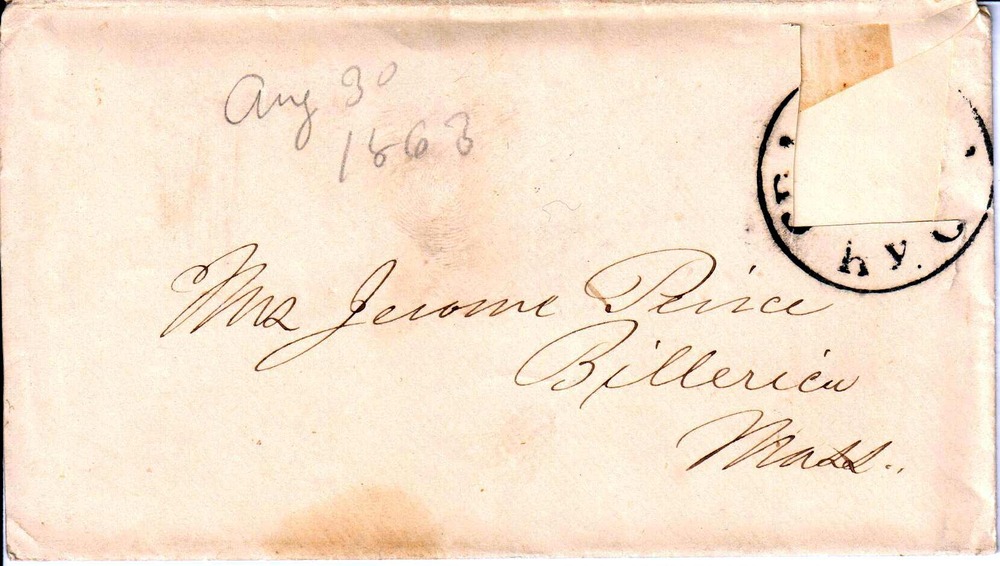 Aug 30
1863
Ky.
Mrs Jerome Peirce
Billerica
Mass..